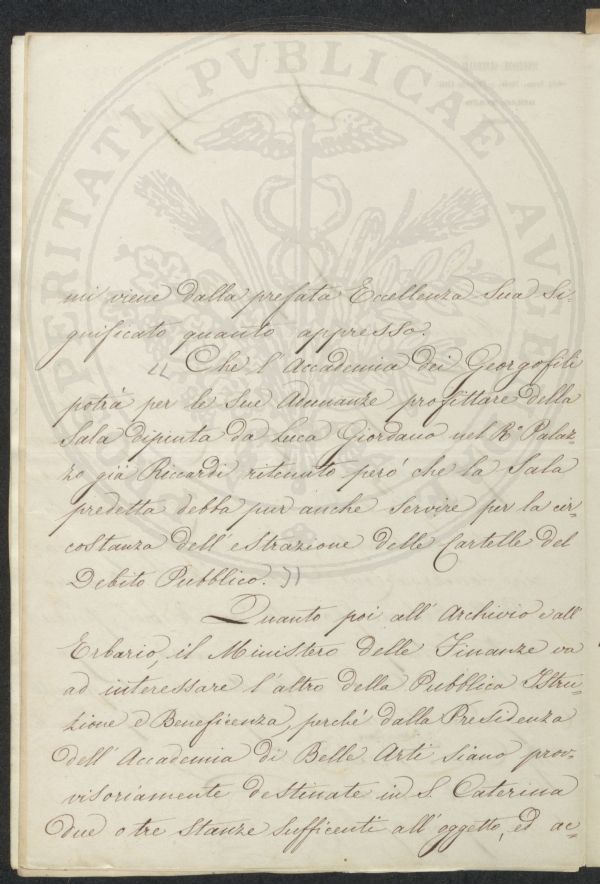 PROSPERITATI PVBLICAE AVGE
mi viene dalla prefata Eccellenza Sua Si-
gnificato quanto appresso.
"Che l'Accademia dei Georgofili
potrà per le Sue Adunanze profittare della
Sala dipinta da Luca Giordano nel R.o Palaz-
zo già Riccardi ritenuto però che la Sala
predetta debba pur anche servire per la cir-
costanza dell'estrazione delle Cartelle del
Debito Pubblico."
Quanto poi all'Archivio e all'
Erbario, il Ministero delle Finanze va
ad interessare l'altro della Pubblica Istru-
zione e Beneficenza, perchè dalla Presidenza
dell'Accademia di Belle Arti siano prov-
visoriamente destinate in S. Caterina
due o tre Stanze Sufficenti all'oggetto, ed ac-